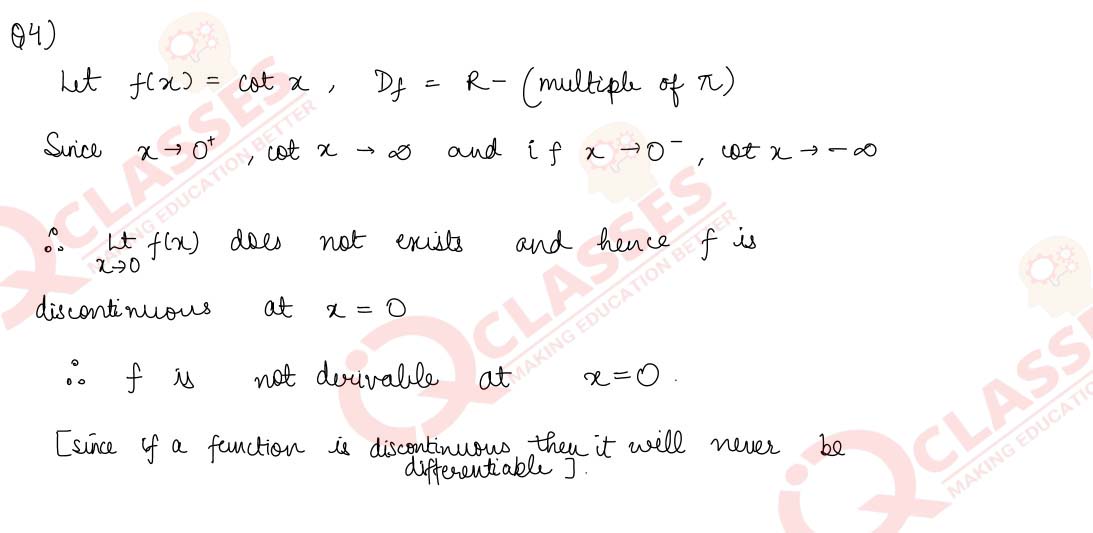 Q4)
Let f(x) = cot x , Df = R - (multiple of π)
Since x → 0⁺ , cot x → ∞ and if x → 0⁻ , cot x → -∞
∴ Lt x→0 f(x) does not exists and hence f is
discontinuous at x = 0
∴ f is not derivable at x=0.
[since if a function is discontinuous then it will never be
differentiable ].
IQ CLASSES
MAKING EDUCATION BETTER
IQ CLASSES
MAKING EDUCATION BETTER
IQ CLASSES
MAKING EDUCATION